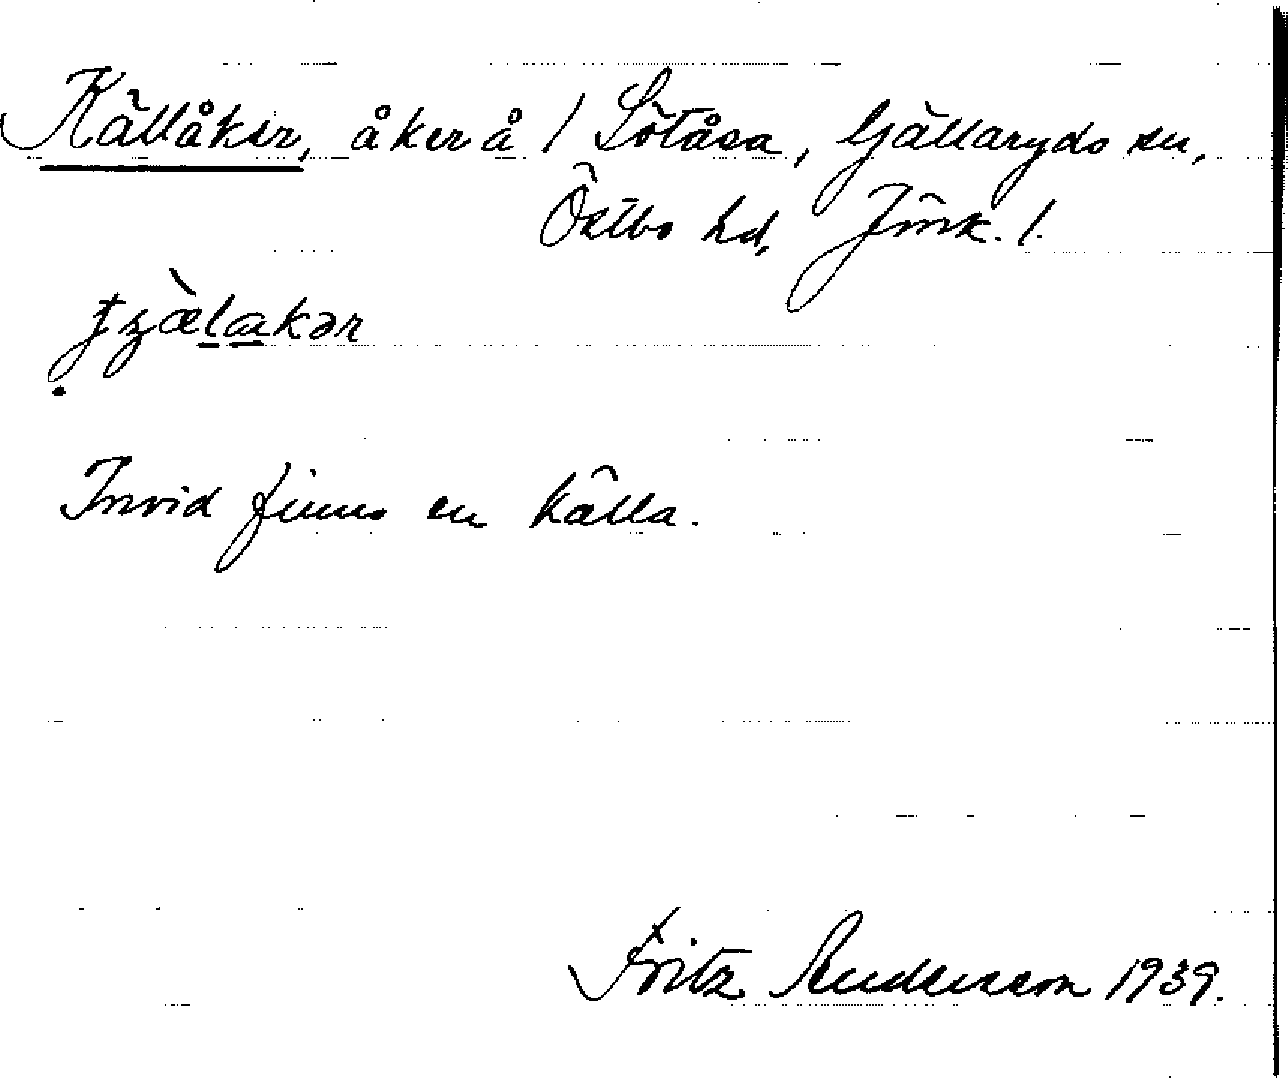 Källåker, åker å 1 Sötåsa, Gällaryds sn,
Östbo hd, Jönk. l.
Invid finns en källa.
Fritz Andersson 1939.